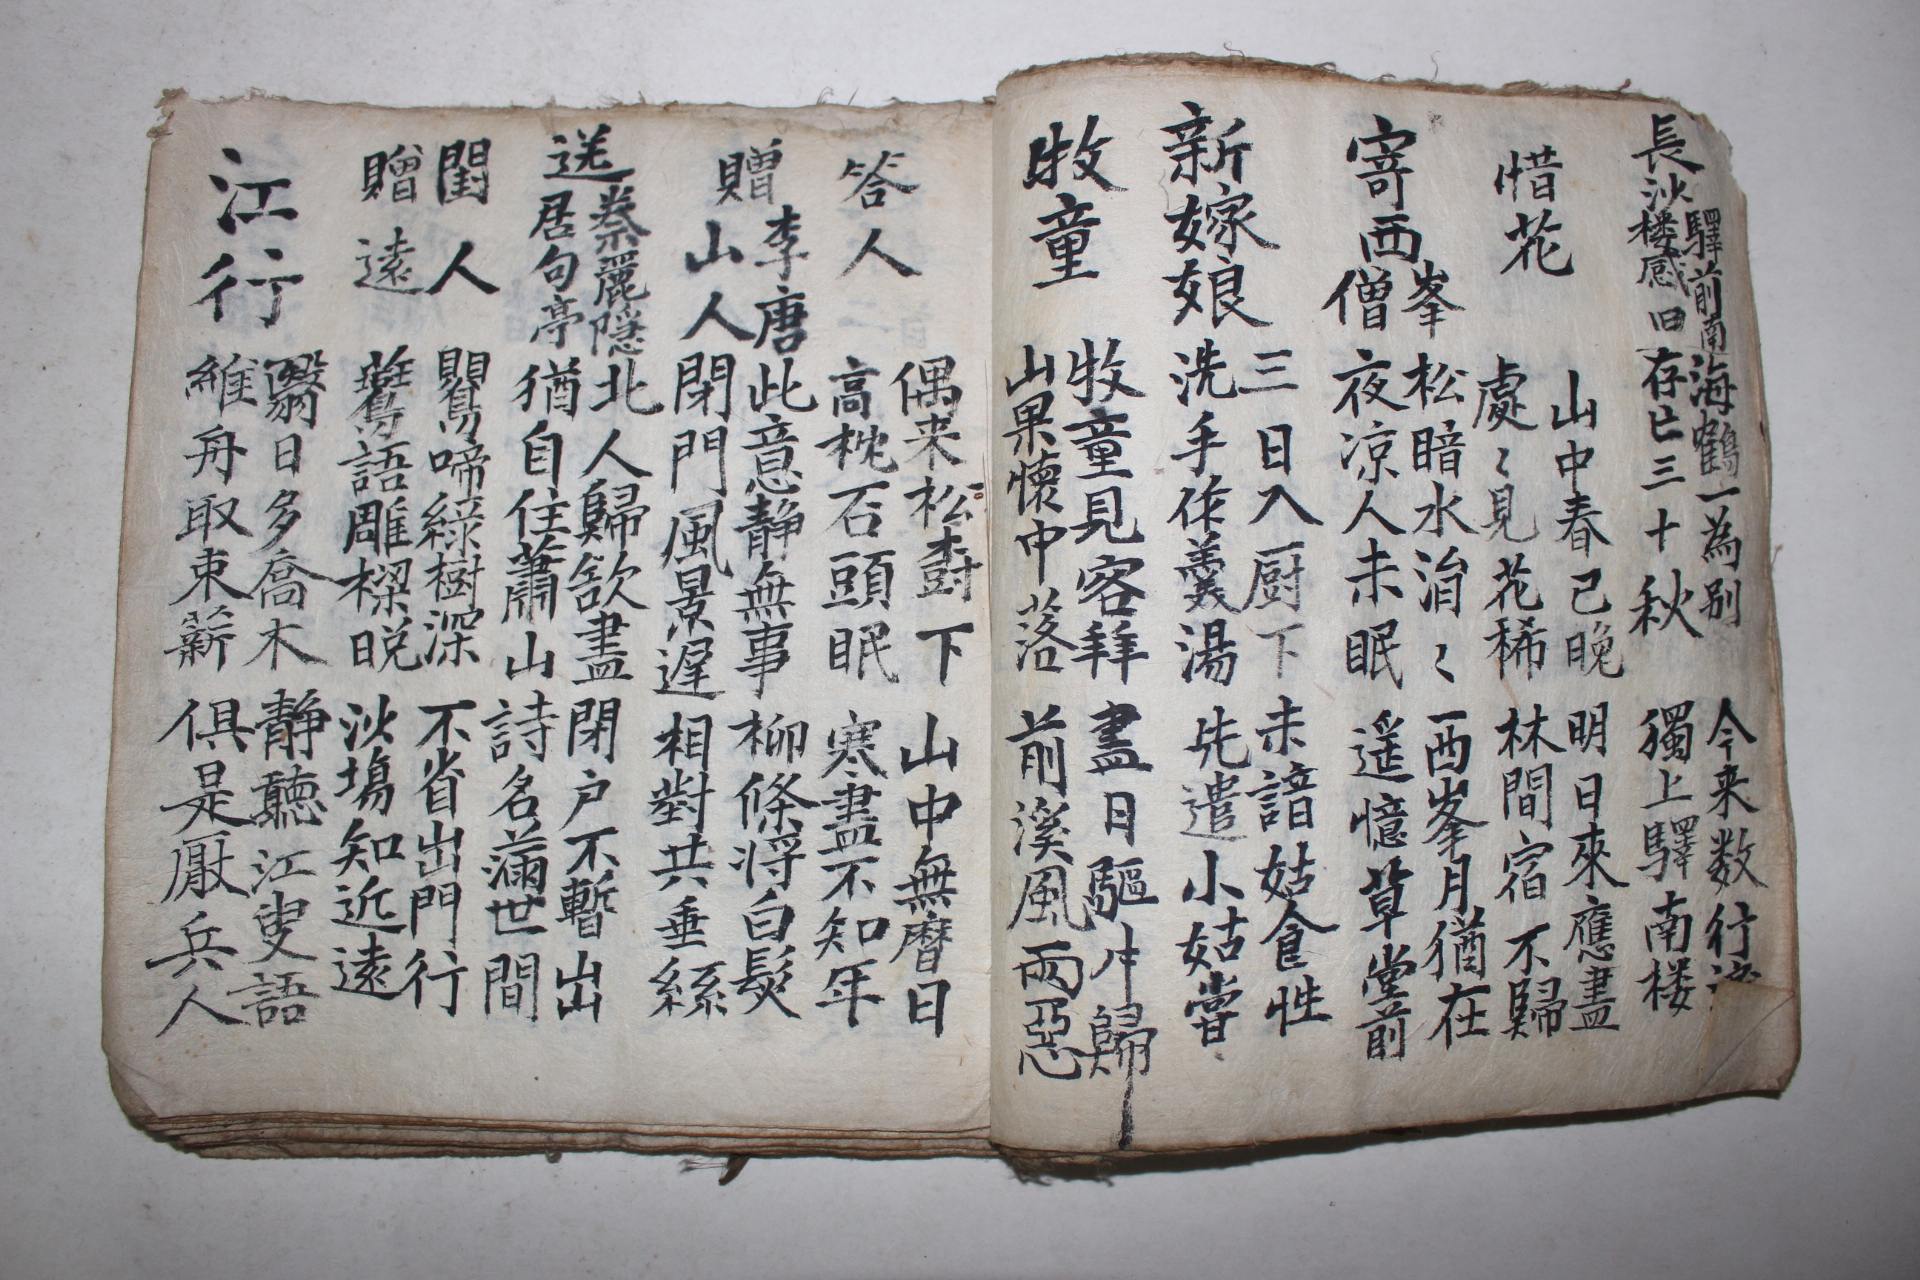 長沙驛前南楼感旧
海鶴一為別
存亡三十秋
今来数行
獨上驛南楼
惜花
山中春已晚
處〻見花稀
明日來應盡
林間宿不歸
寄西峯僧
松暗水涓〻
夜凉人未眠
西峯月猶在
遥憶草堂前
新嫁娘
三日入厨下
洗手作羹湯
未諳姑食性
先遣小姑嘗
牧童
牧童見客拜
山果懷中落
盡日驅牛歸
前溪風雨惡
答人
偶来松樹下
高枕石頭眠
山中無曆日
寒盡不知年
贈李唐山人
此意静無事
閉門風景遲
柳條将白髮
相對共垂絲
送蔡麗隠
居句亭
北人歸欲盡
猶自住蕭山
閉户不暫出
詩名滿世間
閨人贈遠
鸎啼綠樹深
鷰語雕樑晚
不省出門行
沙塲知近遠
江行
翳日多喬木
維舟取束薪
静聽江叟語
俱是厭兵人